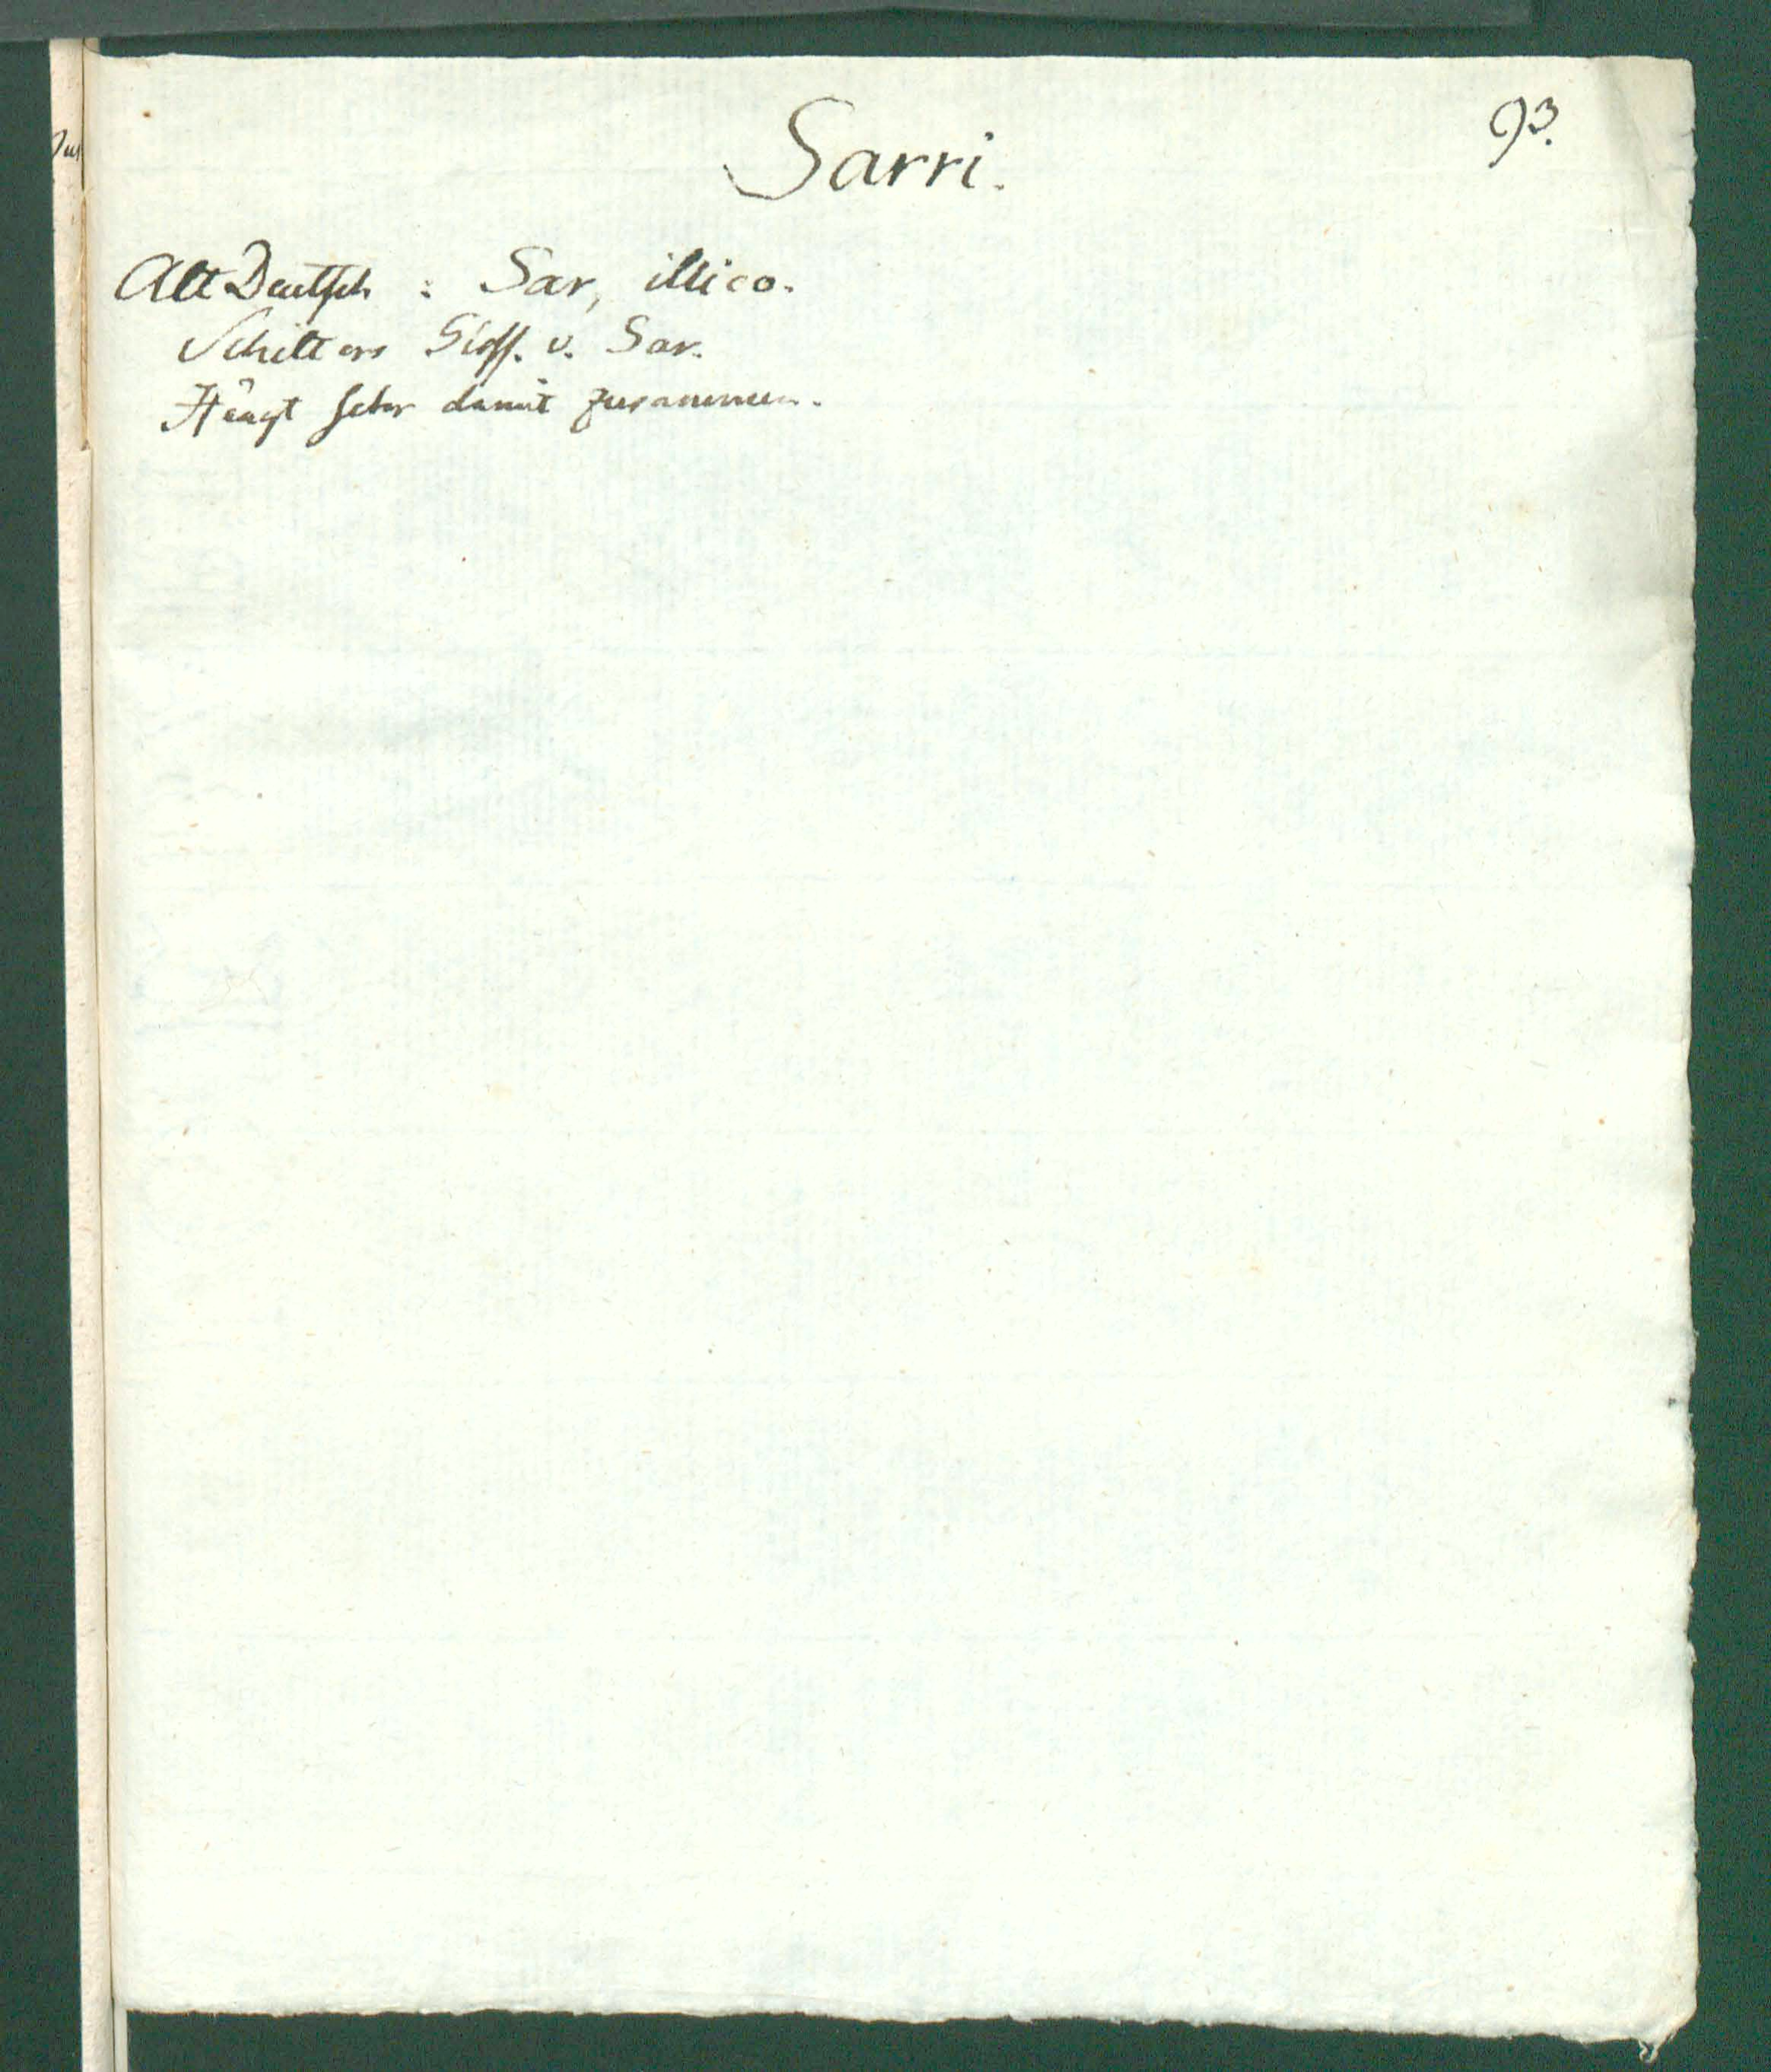 93.
Sarri.
Alt Deutsch : Sar, illico.
Schilters Gloss. v. Sar.
Hängt sehr damit zusammen.